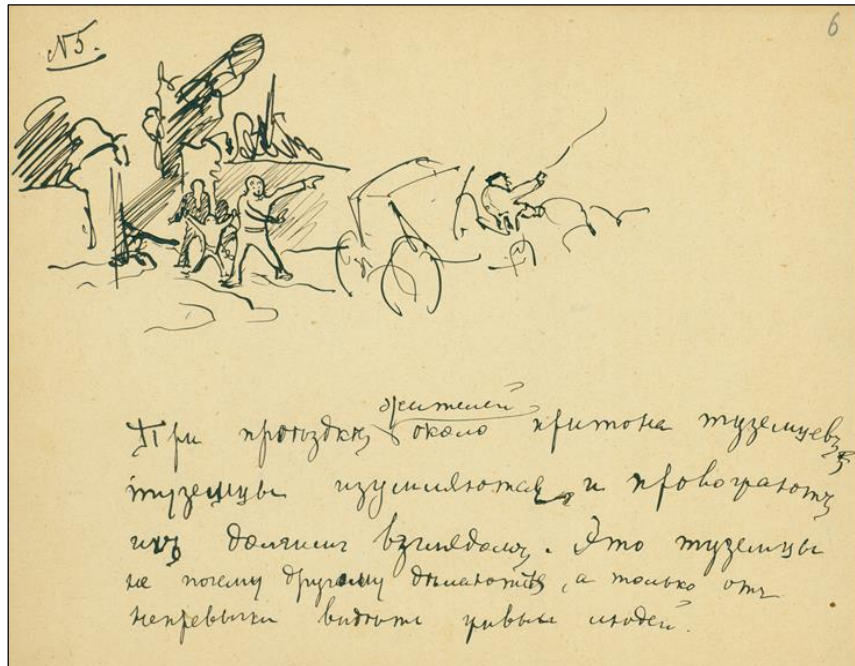 N5.
6
жителей
При проѣздкѣ около притона туземцевъ,
туземцы изумляются и провожаютъ
ихъ долгимъ взглядомъ. Это туземцы
не почему другому дѣлаютъ, а только отъ
непревычки видѣть людей.